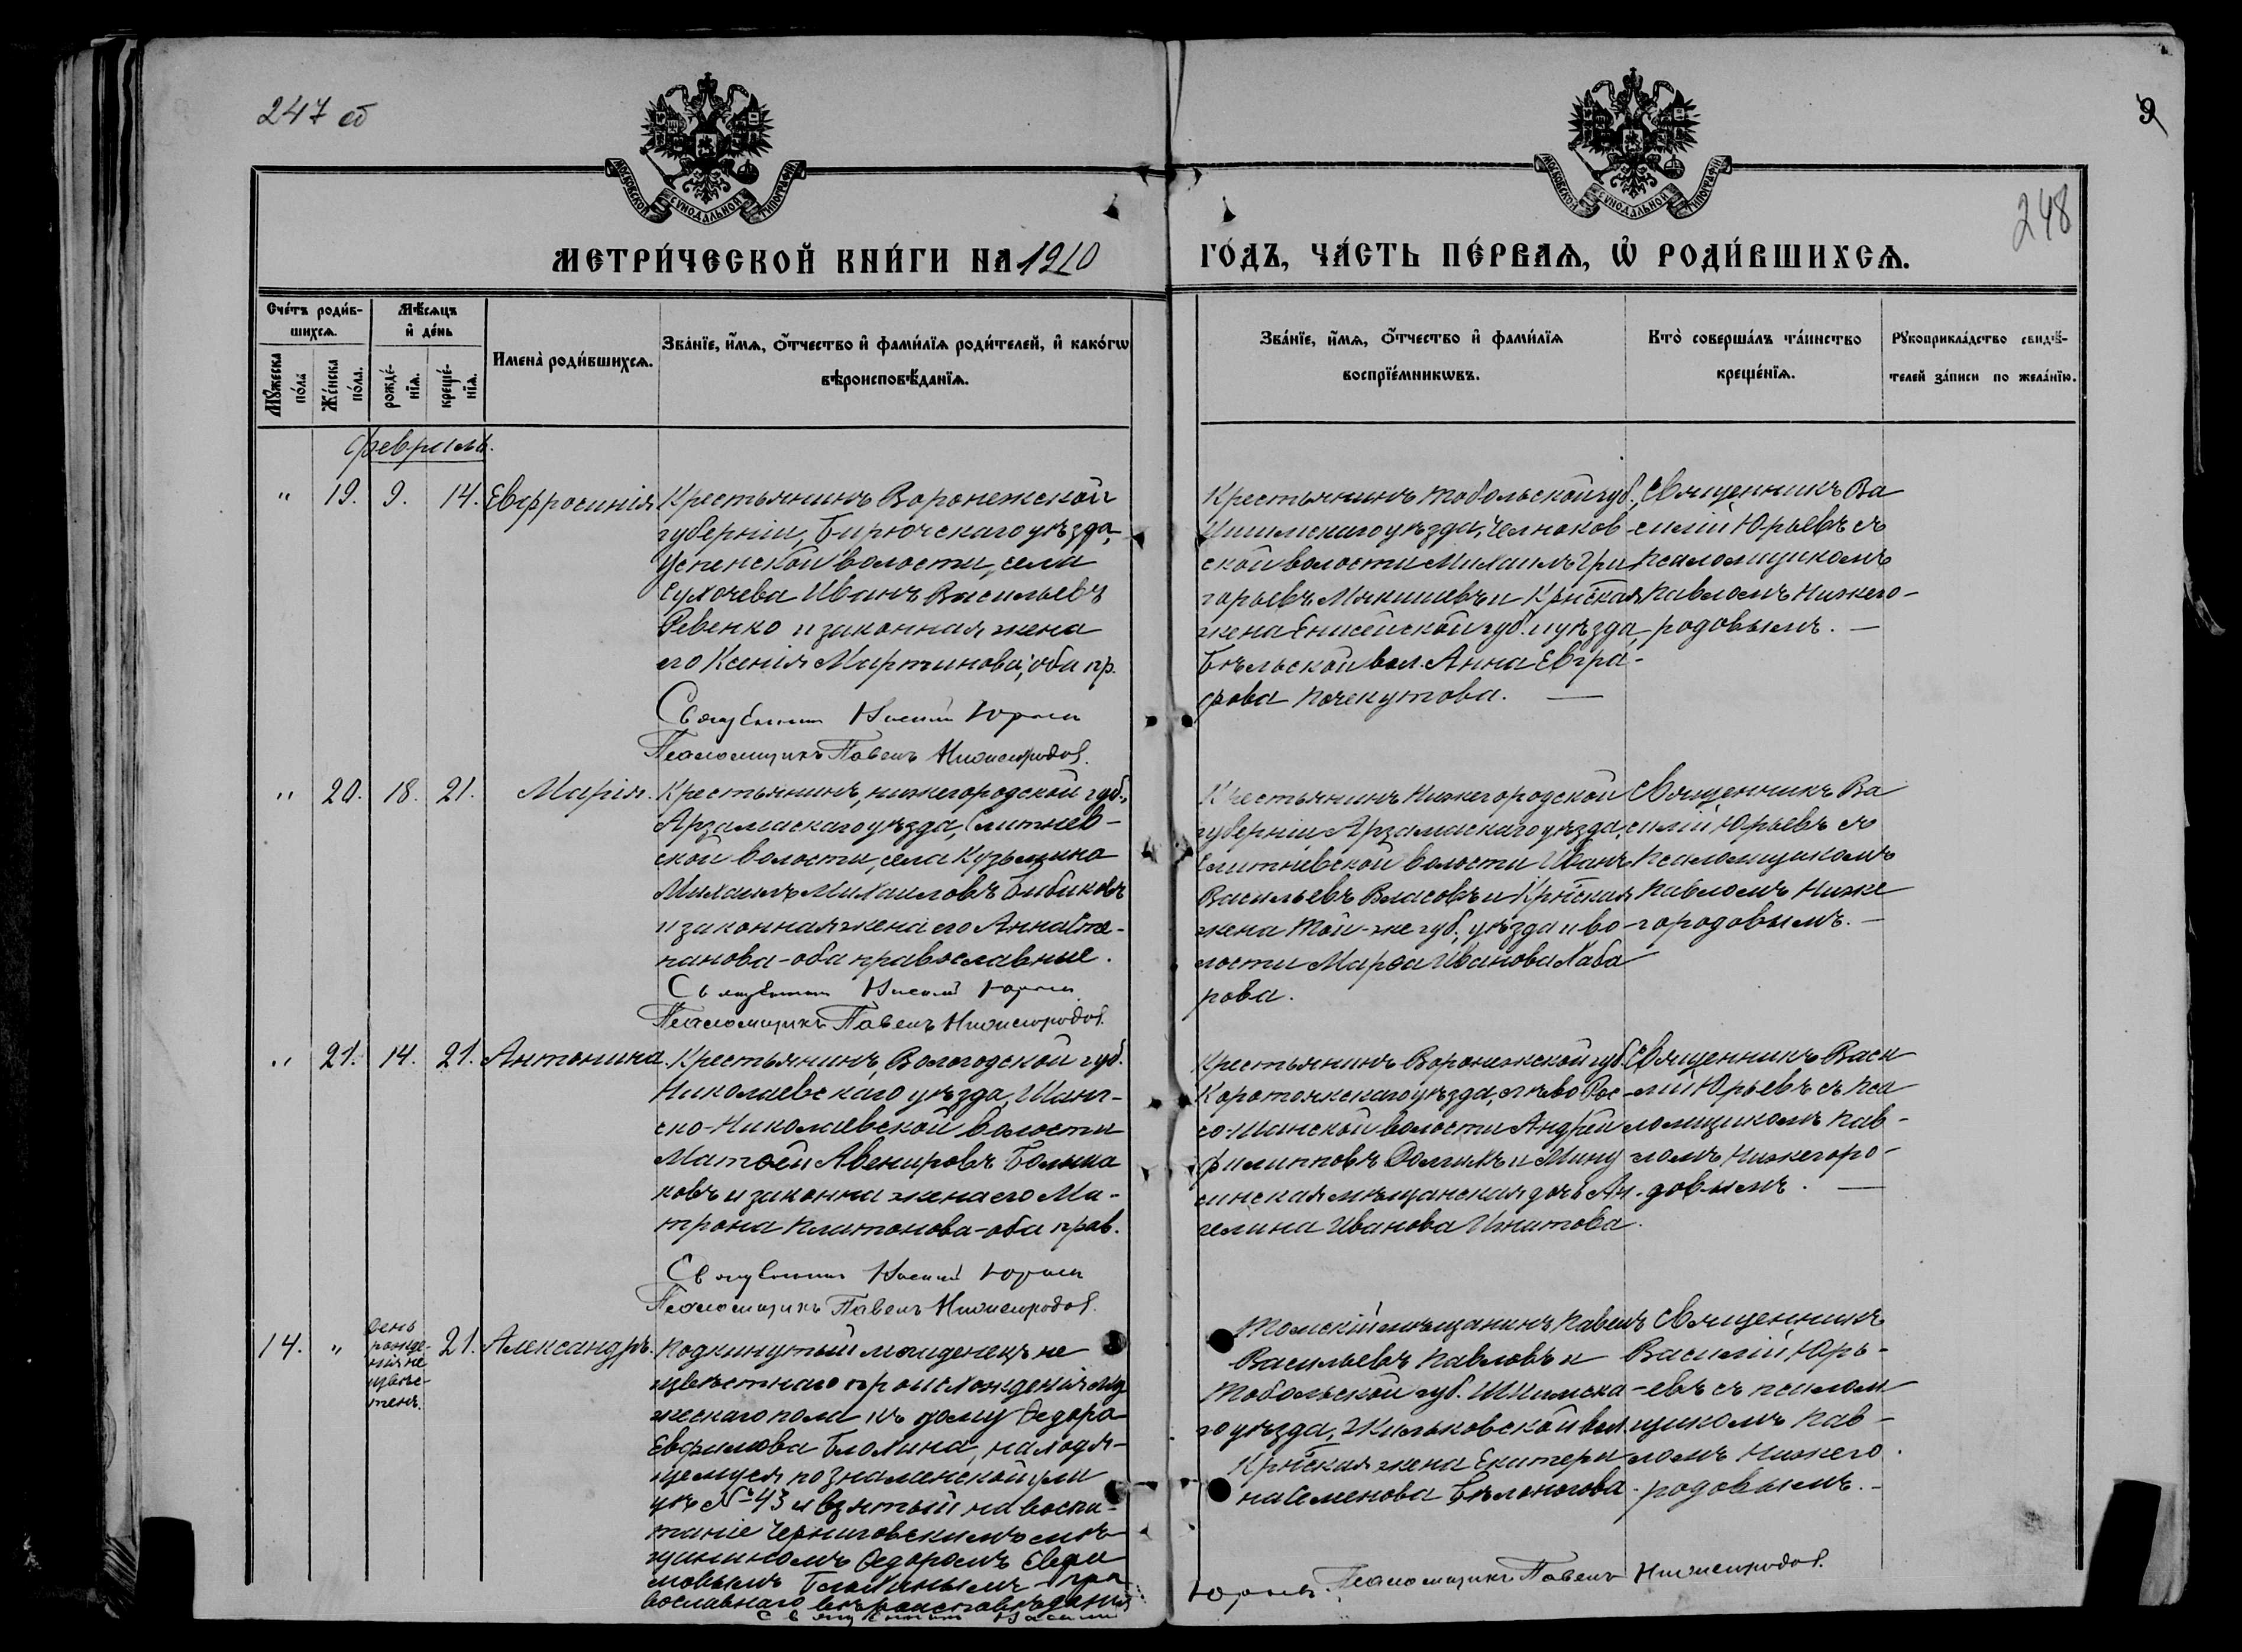 247 об
9
248
МОСКОВСКОЙ СУНОДАЛЬНОЙ ТИПОГРАФІИ
МОСКОВСКОЙ СУНОДАЛЬНОЙ ТИПОГРАФІИ
МЕТРИ́ЧЕСКОЙ КНИ́ГИ НА 1910
ГО́ДЪ, ЧА́СТЬ ПЕ́РВАѦ, Ѡ҆ РОДИ́ВШИХСѦ.
Сче́тъ роди́в-
шихсѧ.
Мꙋ́жеска по́ла
Же́нска по́ла.
Мѣ́сѧцъ
и҆ де́нь
рожде́-
нїѧ.
креще́-
нїѧ.
Имена̀ роди́вшихсѧ.
Зва́нїе, и҆́мѧ, ѻ҆́тчество и҆ фами́лїѧ роди́телей, и҆ како́гѡ
вѣроисповѣ́данїѧ.
Зва́нїе, и҆́мѧ, ѻ҆́тчество и҆ фами́лїѧ
воспрїе́мникѡвъ.
Кто̀ соверша́лъ та́инство
креще́нїѧ.
Рꙋкоприкла́дство свидѣ́-
телей за́писи по жела́нїю.
Февраль.
" 19. 9. 14. Евфросинія
Крестьянинъ Воронежской
губерніи, Бирючскаго уѣзда,
Успенской волости, села
Сухочева Иванъ Васильевъ
Ревенко и законная жена
его Ксенія Мартинова; оба пр.
Священникъ Василій Юрьевъ
Псаломщикъ Павелъ Нижегородов.
Крестьянинъ Тобольской губ.,
Ишимскаго уѣзда, Челноков-
ской волости Михаилъ Гри
горьевъ Мякишевъ и Крнская
жена Енисейской губ. и уѣзда,
Бѣльской вол. Анна Евгра-
фова Почекутова. —
Священникъ Ва
силій Юрьевъ съ
псаломщикомъ
Павломъ Нижего-
родовымъ. —
" 20. 18. 21. Марія.
Крестьянинъ, Нижегородской губ.,
Арзамаскаго уѣзда, Слитнев-
ской волости, села Кузьмина
Михаилъ Михаиловъ Бибиковъ
и законная жена его Анна Сте-
панова - оба православные.
Священникъ Василій Юрьевъ
Псаломщикъ Павелъ Нижегородов.
Крестьянинъ Нижегородской
губерніи Арзамаскаго уѣзда,
Слитневской волости Иванъ
Васильевъ Власовъ и Крнская
жена той-же губ., уѣзда и во-
лости Марѳа Иванова Хаба
рова.
Священникъ Ва
силій Юрьевъ съ
псаломщикомъ
Павломъ Ниже
городовымъ. —
" 21. 14. 21. Антонина.
Крестьянинъ, Вологодской губ.
Николаевскаго уѣзда, Шанг-
ско-Николаевской волости
Матѳей Авенировъ Больша
ковъ и законна жена его Ма-
трона Платонова - оба прав.
Священникъ Василій Юрьевъ
Псаломщикъ Павелъ Нижегородов.
Крестьянинъ Воронежской губ.
Коротоякскаго уѣзда, лѣво Рос-
со-Шанской волости Андрей
Филипповъ Долгихъ и Мину
синская мѣщанская дочь Ан-
гелина Иванова Игнатова.
Священникъ Васи
лій Юрьевъ съ пса
ломщикомъ Пав-
ломъ Нижегоро-
довымъ. —
14. " день
рожде-
нія не
извѣс-
тенъ. 21. Александръ.
Подкинутый младенецъ не
извѣстнаго происхожденія му
жескаго пола къ дому Ѳедора
Евфимова Блохина, находя-
щемуся по Знаменской ули
цѣ № 43 и взятый на воспи-
таніе Черниговскимъ мѣ
щаниномъ Ѳедоромъ Евфи
мовымъ Блохинымъ - пра
вославнаго вѣроисповѣданія
Священникъ Василій
Томскій мѣщанинъ Павелъ
Васильевъ Павловъ и
Тобольской губ. Ишимска-
го уѣзда, Жильковской вол.
Крнская жена Екатери
на Семенова Бѣлоногова.
Священникъ
Василій Юрь-
евъ съ псалом
щикомъ Пав-
ломъ Нижего
родовымъ. -
Юрьевъ. Псаломщикъ Павелъ Нижегородов.